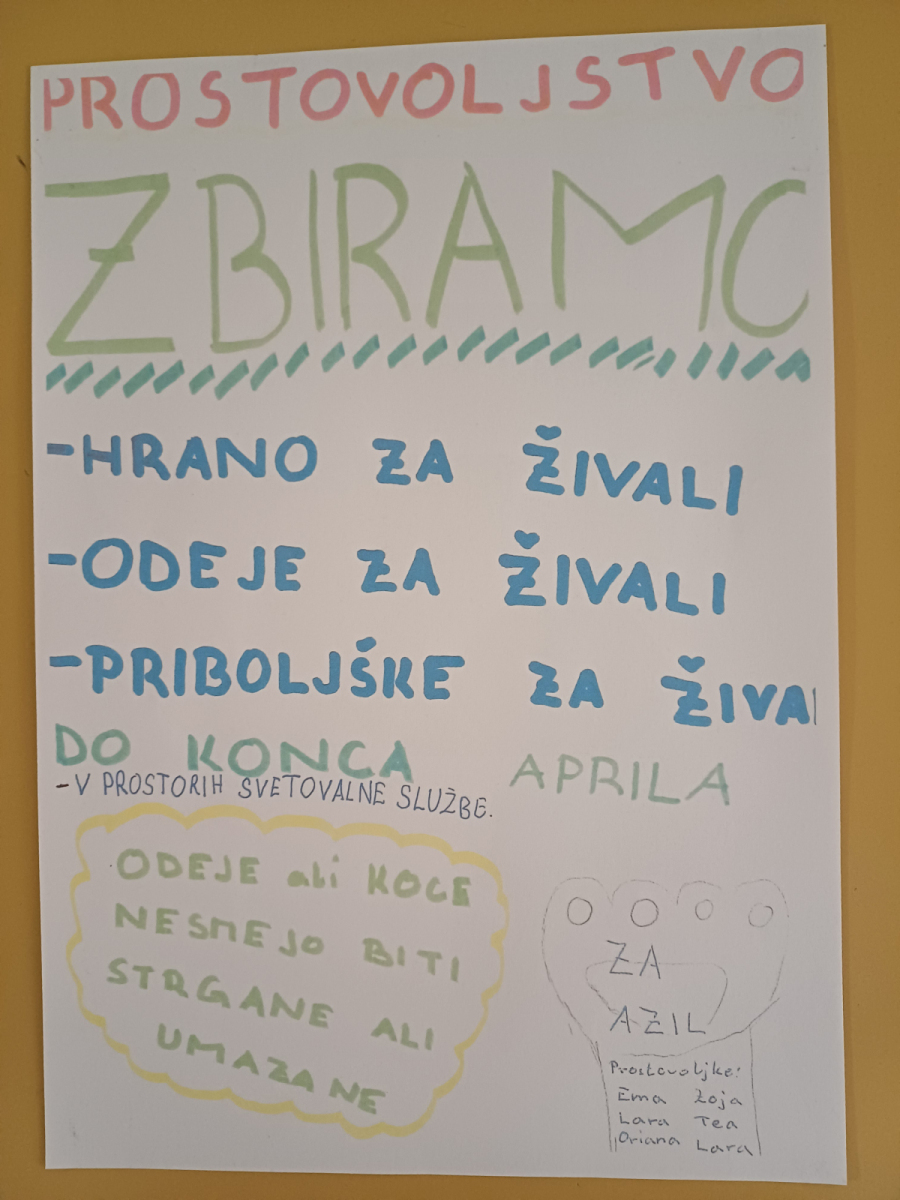 PROSTOVOLJSTVO
ZBIRAMO
-HRANO ZA ŽIVALI
-ODEJE ZA ŽIVALI
-PRIBOLJŠKE ZA ŽIVAL
DO KONCA APRILA
-V PROSTORIH SVETOVALNE SLUŽBE.
ODEJE ali KOCE
NESMEJO BITI
STRGANE ALI
UMAZANE
ZA
AZIL
Prostovoljke:
Ema Zoja
Lara Tea
Oriana Lara